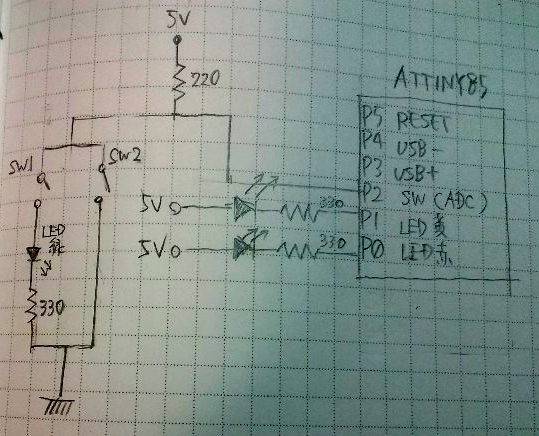 5V
220
ATTINY85
P5 RESET
P4 USB-
P3 USB+
P2 SW(ADC)
P1 LED黄
P0 LED赤
SW1
SW2
5V
330
5V
330
LED
緑
330